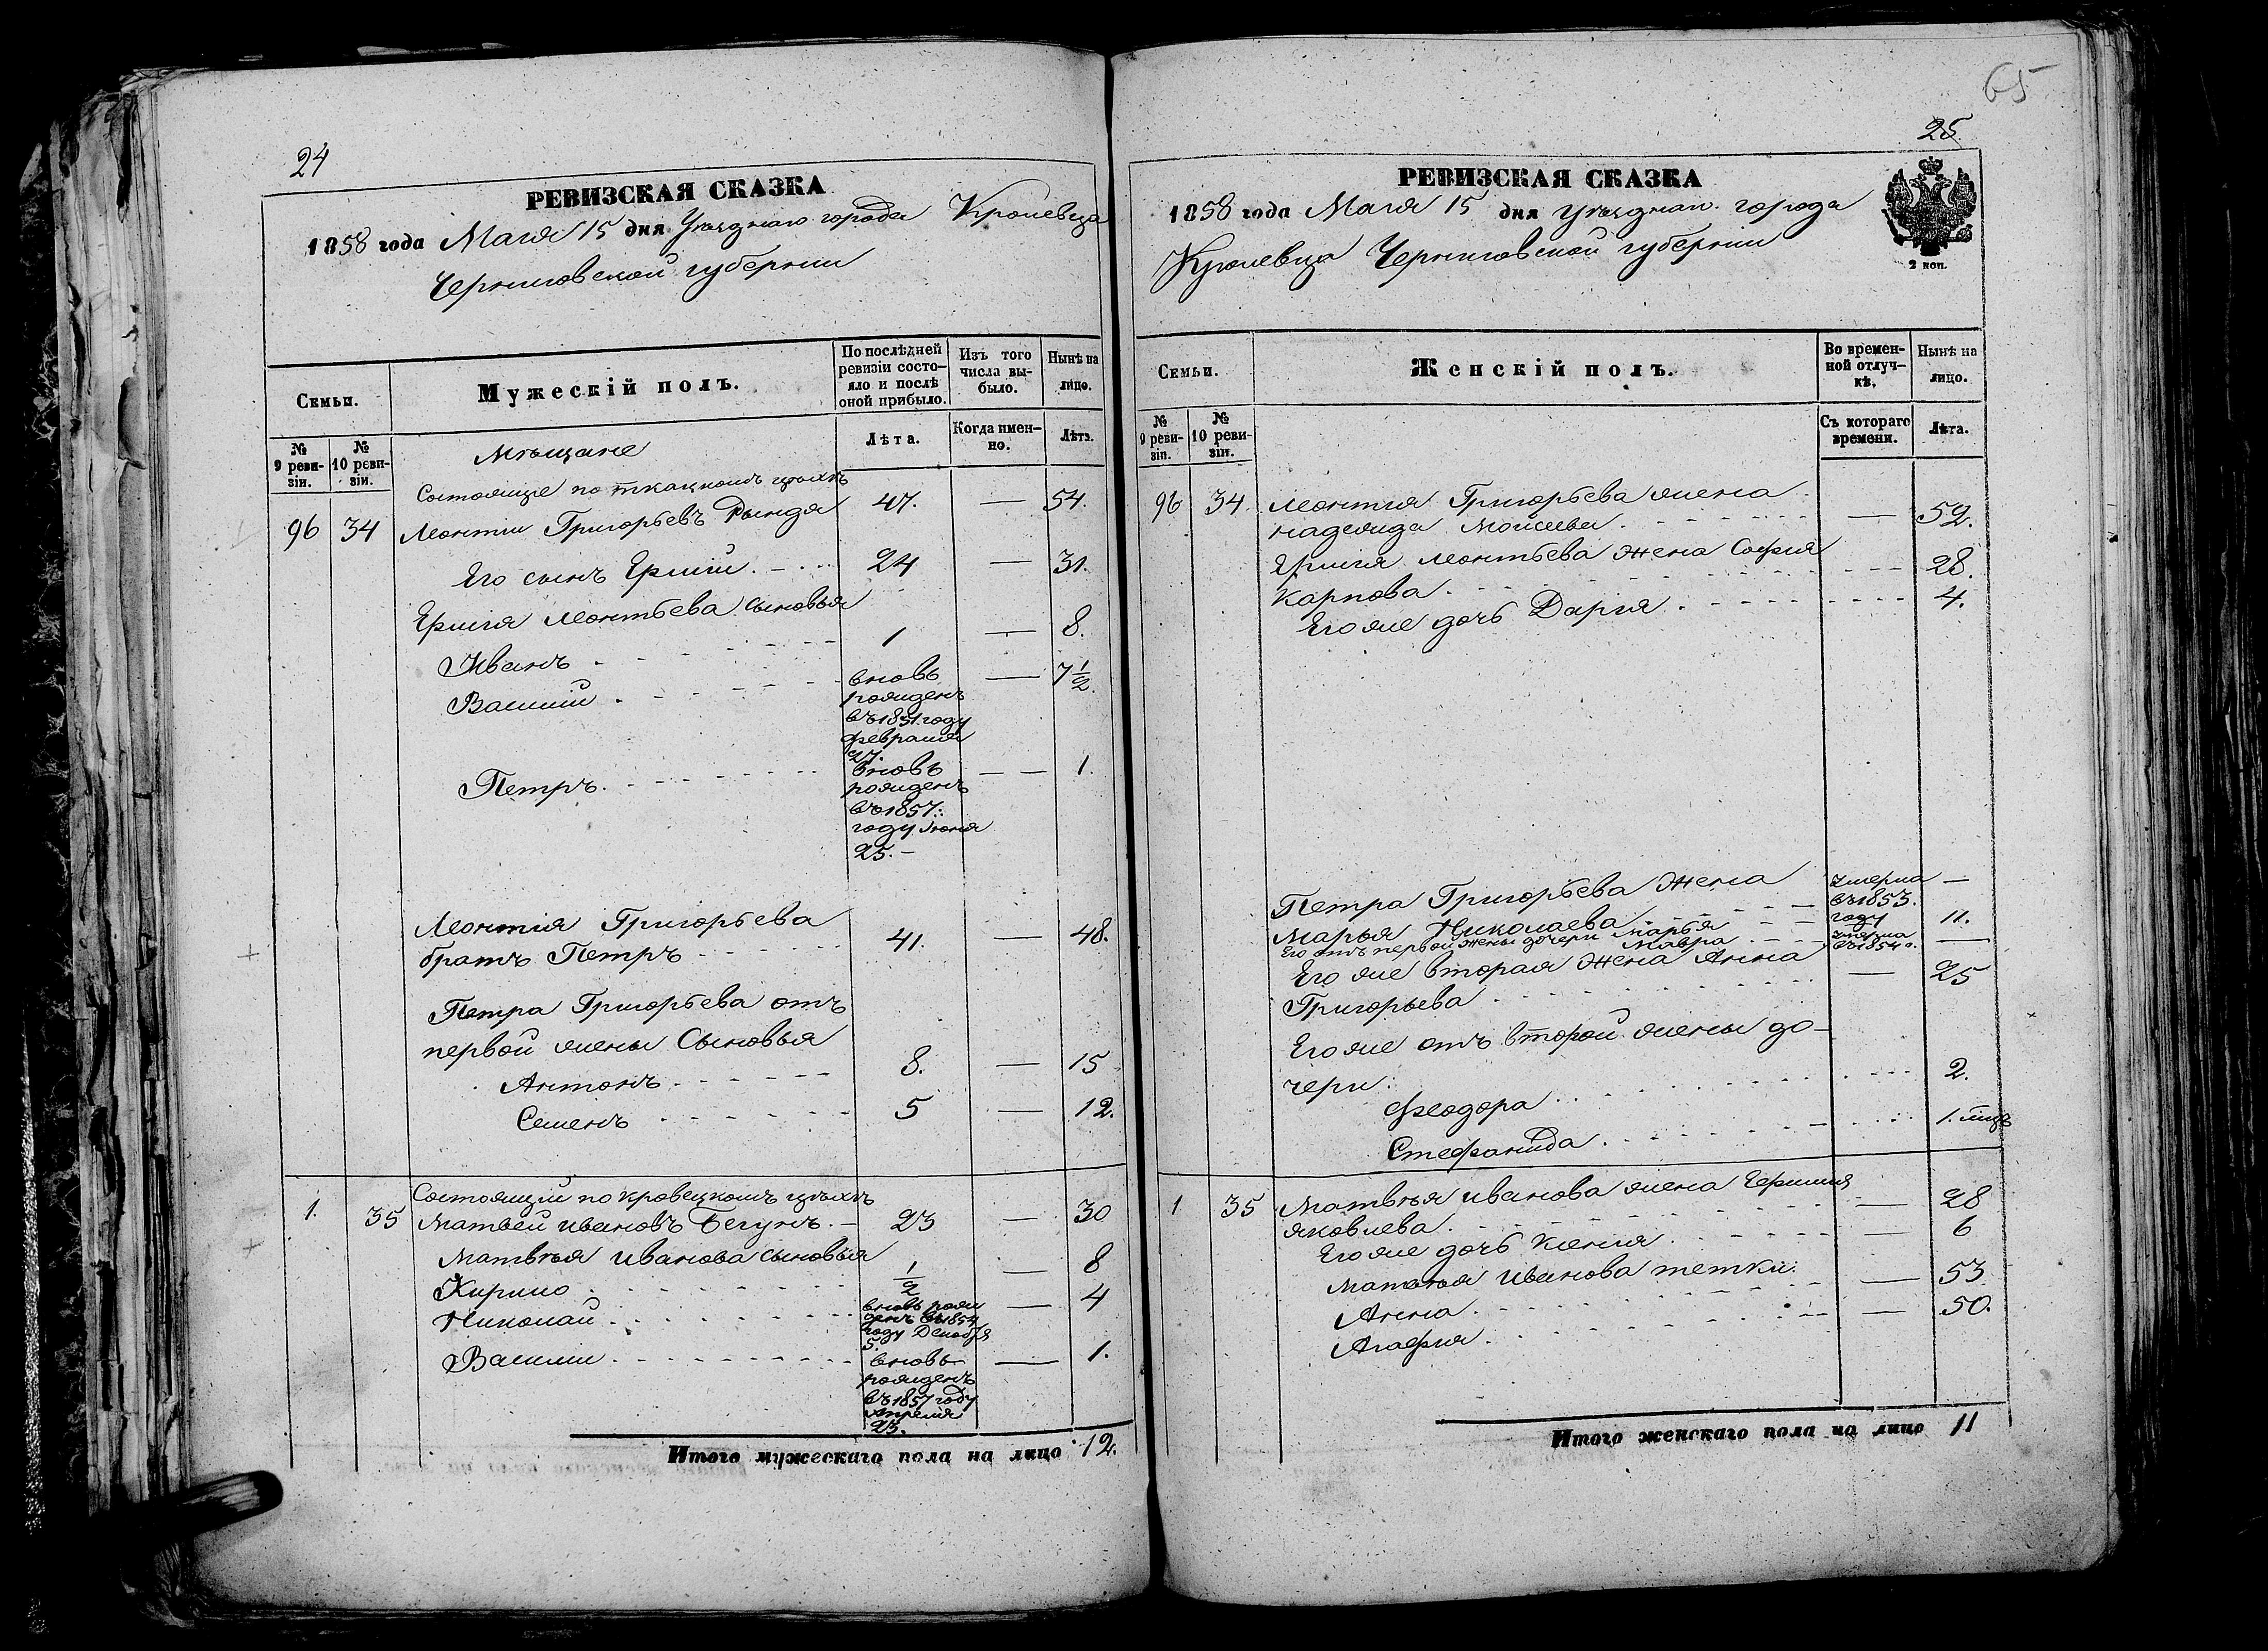 24
РЕВИЗСКАЯ СКАЗКА
1858 года Маія 15 дня Уѣзднаго города Кролевца
Черниговской губерніи
Семьи.
Мужескій полъ.
По послѣдней ревизіи состояло и послѣ оной прибыло.
Изъ того числа выбыло.
Нынѣ на лицо.
№ 9 ревизіи.
№ 10 ревизіи.
Лѣта.
Когда именно.
Лѣта.
Мѣщане
Состоящіе по ткацкомъ цѣхѣ
96 34 Леонтій Григорьевъ Рында 47. — 54.
Его сынъ Ермій. 24 — 31.
Ермія Леонтьева сыновья
Иванъ 1 — 8.
Василій вновь — 7 1/2.
рожденъ
въ 1851 году
февраля
27.
Петръ. вновь — 1.
рожденъ
въ 1857:
году Іюня
25.—
Леонтія Григорьева
братъ Петръ 41. — 48.
Петра Григорьева отъ
первой жены Сыновья
Антонъ 8. — 15
Семенъ 5 — 12.
Состоящій по кравецкомъ цѣхѣ
1. 35 Матвей Ивановъ Бегунъ.— 23 — 30
Матвѣя Иванова сыновья
Кирило 1/2 — 8
Николай вновь рож — 4
денъ въ 1854
году Декабря
5.
Василій вновь — 1.
рожденъ
въ 1857 году
Апреля
23.
Итого мужескаго пола на лицо 12.
65
25.
РЕВИЗСКАЯ СКАЗКА
1858 года Маія 15 дня Уѣзднаго города
Кролевца Черниговской губерніи
2 коп.
Семьи.
Женскій полъ.
Во временной отлучкѣ.
Нынѣ на лицо.
№ 9 ревизіи.
№ 10 ревизіи.
Съ котораго времени.
Лѣта.
96 34. Леонтія Григорьева жена
Надежда Моисеева. — 52.
Ермія Леонтьева жена Софія
Карпова. 28.
Его же дочь Дарія. 4.
Петра Григорьева жена умерла —
Марья Николаева въ 1853. году
Его отъ первой жены дочери Марья 11.
Мавра умерла въ 1854 г. —
Его же вторая жена Анна
Григорьева — 25
Его же отъ второй жены до-
чери:
Феодора 2.
Стефанида 1. мѣсц
1 35 Матвѣя Иванова жена
Яковлева. — 28
Его же дочь Ксенія — 6
Матвѣя Иванова тетки
Анна — 53
Агафія — 50.
Итого женскаго пола на лицо 11